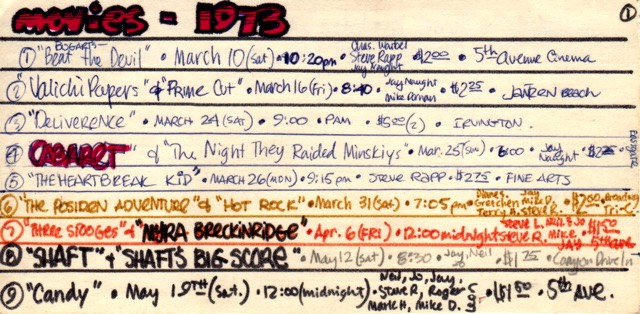 MOVIES - 1973 ①
① BOGART'S - "Beat the Devil" • March 10 (sat) • 10:20pm • Chas. Steve Rapp Jay Naught • $2.00 • 5th Avenue Cinema
② "Valichi Papers" & "Prime Cut" • March 16 (Fri) • 8:40 • Jay Naught Mike • $2.25 • JANTZEN BEACH
③ "Deliverence" • MARCH 24 (SAT) • 9:00 • PAM • $5.00 (2) • IRVINGTON.
④ CABARET & "The Night They Raided Minskiys" • Mar. 25 (SUN) • 6:00 • Jay Naught • $2.25 • EASTGATE
⑤ "THE HEARTBREAK KID" • MARCH 26 (MON) • 9:15pm • STEVE RAPP • $2.75 • FINE ARTS
⑥ "THE POSIDEN ADVENTURE" & "HOT ROCK" • March 31 (sat) • 7:05pm • Diane S. Jay Gretchen Mike D. Terry H. Steve • $2.00 • Broadway Tri-C
⑦ "THREE STOOGES" & "MYRA BRECKINRIDGE" • Apr. 6 (FRI) • 12:00 midnight • STEVE L. Neil & Jo STEVE R. MIKE JAY • $1.50 5th ave
⑧ "SHAFT" & "SHAFT'S BIG SCORE" • May 12 (sat) • 8:30 • Jay, Neil • $1.75 • Canyon Drive In
⑨ "Candy" • May 19TH (sat.) • 12:00 (midnight) • Neil, Jo, Jay, Steve R, Roger Mark H, Mike D. • $1.50 • 5th AVE.